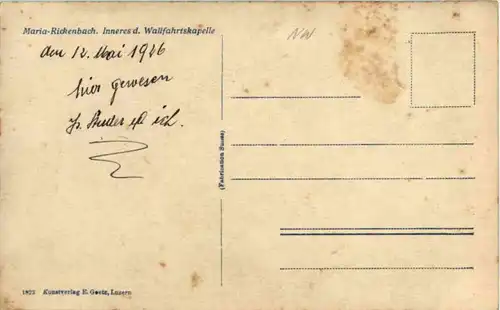 Maria-Rickenbach. Inneres d. Wallfahrtskapelle
NW
den 12. Mai 1926
hier gewesen
ich.
(Fabrication Suisse)
1823 Kunstverlag E. Goetz, Luzern